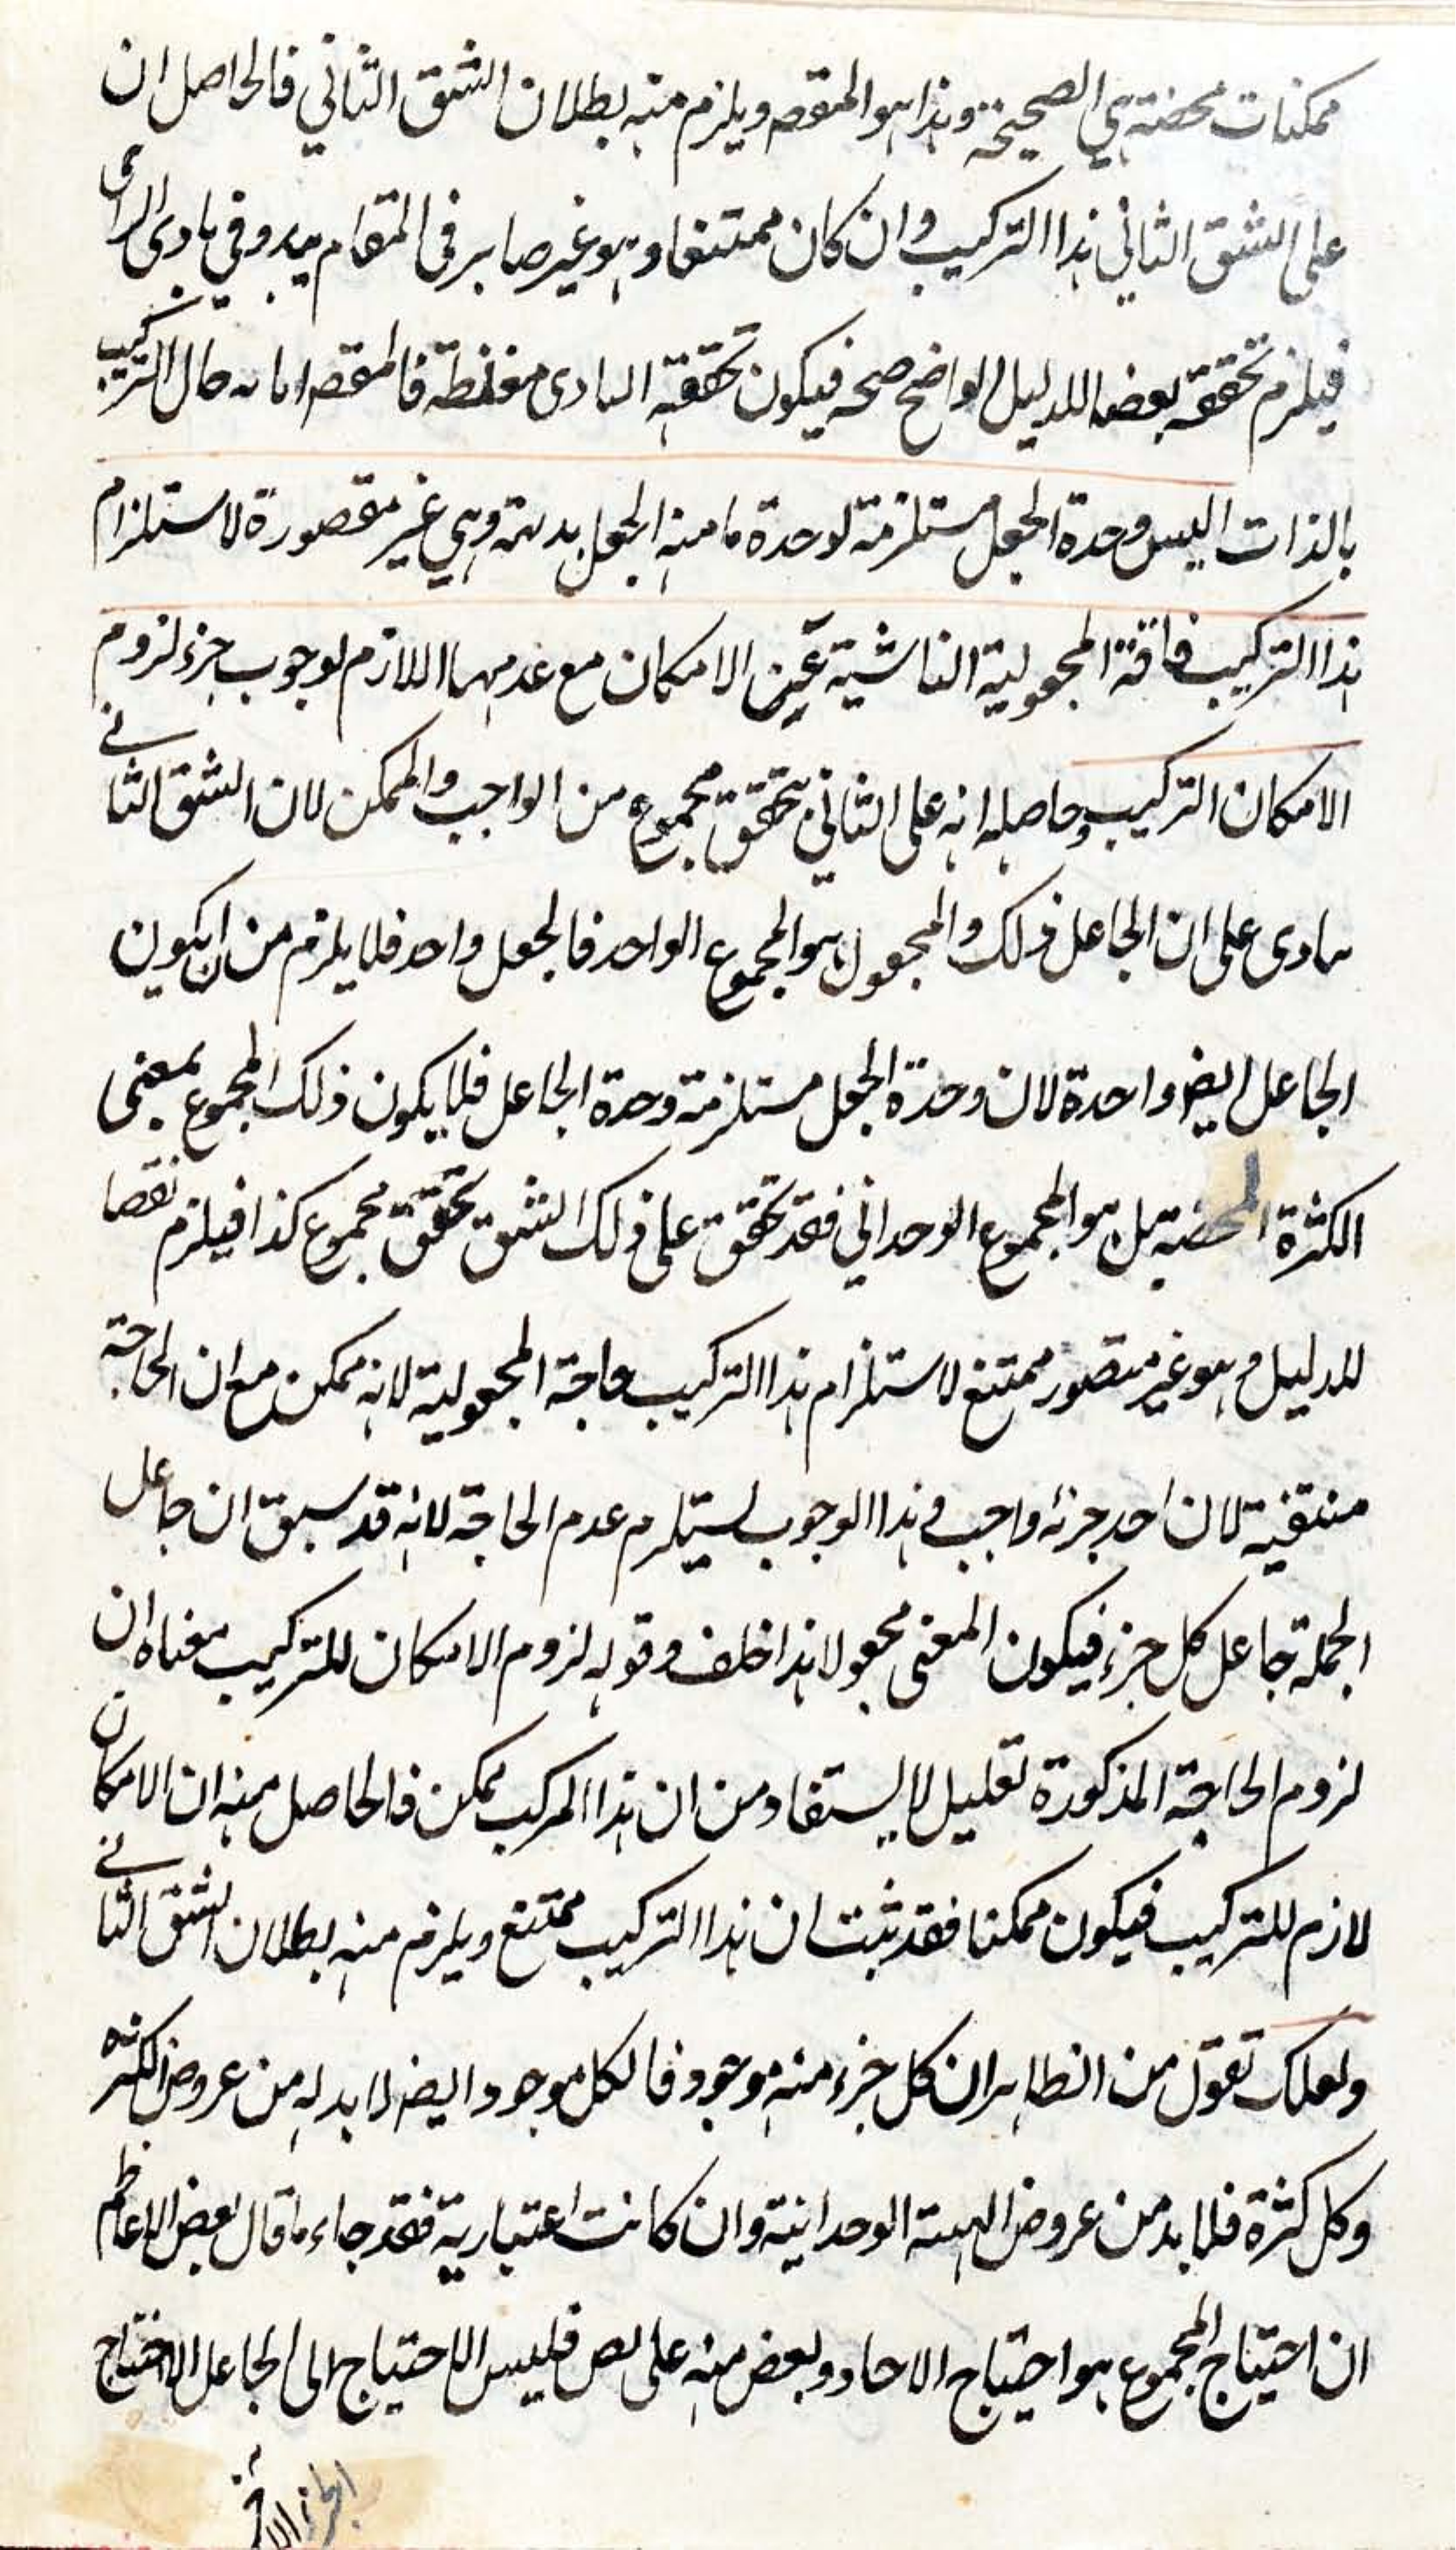 ممكنات محضة هي الصحيحة وهذا هو المقصم ويلزم منه بطلان الشق الثاني فالحاصل ان
على الشق الثاني هذا التركيب وان كان ممتنعا وهو غير صابر في المقام يبدو في بادى الراى
فيلزم تحققه بعض الدليل الواضح صحه فيكون تحققه البادى مغلطة فالمقصم حال التركيب
بالذات اليس وحدة الجعل مستلزمة لوحدة ما منه الجعل بديهة وهي غير مقصورة لاستلزام
هذا التركيب فاقة المجعولية الناشية عين الامكان مع عدمهما اللازم لوجوب جزء لزوم
الامكان التركيب وحاصله انه على الثاني يتحقق مجموع من الواجب والممكن لان الشق الثاني
ينادى على ان الجاعل ذلك والمجعول هو المجموع الواحد فالجعل واحد فلا يلزم من ان يكون
الجاعل ايضم واحدة لان وحدة الجعل مستلزمة وحدة الجاعل فلا يكون ذلك المجموع بمعنى
الكثرة المحضة بل هو المجموع الوحداني فقد تحقق على ذلك الشق تحقق مجموع كذا فيلزم نقصا
للدليل وهو غير متصور ممتنع لاستلزام هذا التركيب حاجة المجعولية لانه ممكن مع ان الحاجة
منتفية لان احد جزئه واجب وهذا الوجوب يستلزم عدم الحاجة لانه قد سبق ان جاعل
الجملة جاعل كل جزء فيكون المغنى مجعولا هذا خلف وقوله لزوم الامكان للتركيب معناه ان
لزوم الحاجة المذكورة تعليل لا يستفاد من ان هذا المركب ممكن فالحاصل منه ان الامكان
لازم للتركيب فيكون ممكنا فقد ثبت ان هذا التركيب ممتنع ويلزم منه بطلان الشق الثاني
ولعلك تقول من الظاهر ان كل جزء منه موجود فالكل موجود ايضم لا بد له من عروض الكثرة
وكل كثرة فلا بد من عروض الهيئة الوحدانية وان كانت اعتبارية فقد جاء ما قال بعض الاعاظم
ان احتياج المجموع هو احتياج الاحاد وبعض منه على بعض فليس الاحتياج الى الجاعل الاحتياج